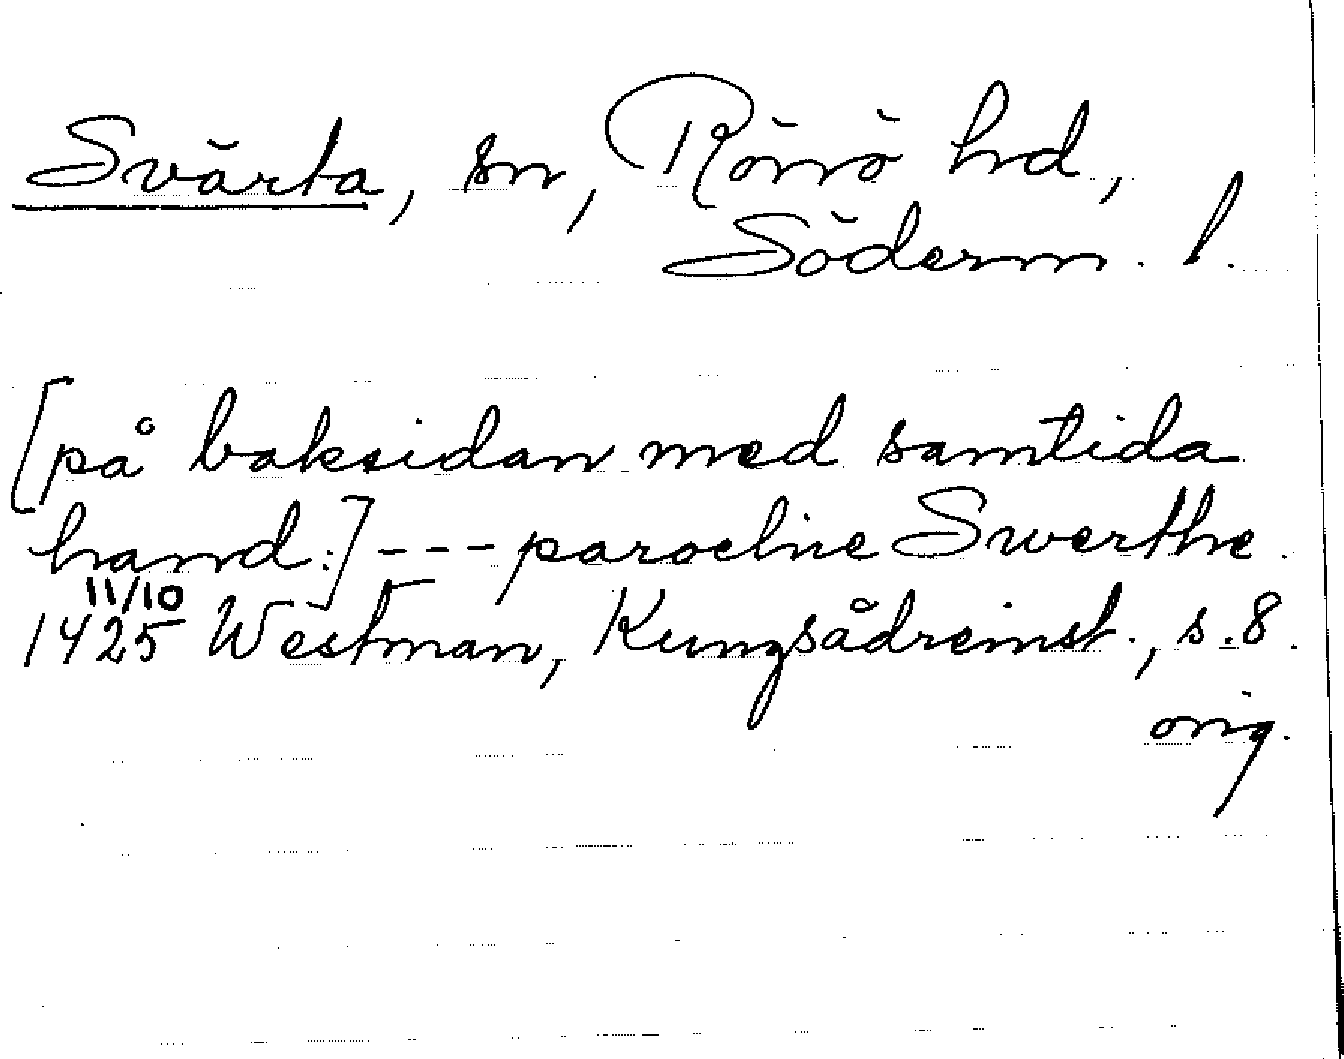 Svärta, sn, Rönö hd,
Söderm. l.
[på baksidan med samtida
hand:] --- parochie Swerthe.
11/10
1425 Westman, Kungsådreinst., s. 8.
orig.